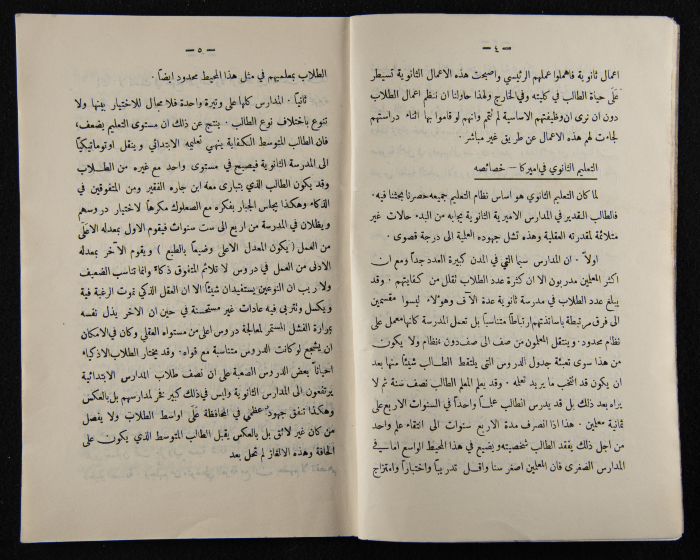 — ٤ —
اعمال ثانوية فاهملوا عملهم الرئيسي واصبحت هذه الاعمال الثانوية تسيطر
على حياة الطالب في كليته وفي الخارج ولهذا حاولنا ان ننظم اعمال الطلاب
دون ان نرى ان وظيفتهم الاساسية لم تُتمم وانهم لو قاموا بها اثناء دراستهم
لجاءت لهم هذه الاعمال عن طريق غير مباشر.
التعليم الثانوي في اميركا — خصائصه
لما كان التعليم الثانوي هو اساس نظام التعليم جميعه حصرنا بحثنا فيه.
فالطالب القدير في المدارس الاميرية الثانوية يجابه من البدء حالات غير
متلائمة لمقدرته العقلية وهذه تشل جهوده العلمية الى درجة قصوى.
اولاً. ان المدارس سيما التي في المدن كبيرة العدد جداً ومع ان
اكثر المعلمين مدربون الا ان كثرة عدد الطلاب تقلل من كفايتهم. وقد
يبلغ عدد الطلاب في مدرسة ثانوية عدة آلاف وهولاء ليسوا مقسمين
الى فرق مرتبطة باساتذتهم ارتباطاً متناسباً بل تعمل المدرسة كانها معمل على
نظام محدود. وينتقل المعلمون من صف الى صف دون نظام ولا يكون
من هذا سوى تعبئة جدول الدروس التي يلتقط الطالب شيئاً منها بعد
ان يكون قد انتخب ما يريد تعلمه. وقد يعلم المعلم الطالب نصف سنة ثم لا
يراه بعد ذلك بل قد يدرس الطالب علماً واحداً في السنوات الاربع على
ثمانية معلمين. هذا اذا انصرف مدة الاربع سنوات الى انتقاء علم واحد
من اجل ذلك يفقد الطالب شخصيته ويضيع في هذا المحيط الواسع اما في
المدارس الصغرى فان المعلمين اصغر سنا واقل تدريباً واختباراً وامتزاج
— ٥ —
الطلاب بمعلميهم في مثل هذا المحيط محدود ايضاً.
ثانياً. المدارس كلها على وتيرة واحدة فلا مجال للاختيار بينها ولا
تنوع باختلاف نوع الطالب. ينتج عن ذلك ان مستوى التعليم يضعف،
فان الطالب المتوسط الكفاية ينهي تعليمه الابتدائي وينقل اوتوماتيكياً
الى المدرسة الثانوية فيصبح في مستوى واحد مع غيره من الطلاب
وقد يكون الطالب الذي يتبارى معه ابن جاره الفقير ومن المتفوقين في
الذكاء وهكذا يجلس الجبار بفكره مع الصعلوك مكرهاً لاختيار دروسهم
ويظلان في المدرسة من اربع الى ست سنوات فيقوم الاول بمعدله الاعلى
من العمل (يكون المعدل الاعلى وضيعاً بالطبع) ويقوم الآخر بمعدله
الادنى من العمل في دروس لا تلائم المتفوق ذكاءً وانما تناسب الضعيف
ولا ريب ان النوعين يستفيدان شيئاً الا ان العقل الذكي تموت الرغبة فيه
ويكسل وتتربى فيه عادات غير مستحسنة في حين ان الاخر يذل نفسه
بمرارة الفشل المستمر لمعالجة دروس اعلى من مستواه العقلي وكان في الامكان
ان يشجع لو كانت الدروس متناسبة مع قواه. وقد يختار الطلاب الاذكياء
احياناً بعض الدروس الصعبة على ان نصف طلاب المدارس الابتدائية
يرتفعون الى المدارس الثانوية وليس في ذلك كبير فخر لمدارسهم بل بالعكس
وهكذا تنفق جهود عظمى في المحافظة على اواسط الطلاب ولا يفصل
من كان غير لائق بل بالعكس يقبل الطالب المتوسط الذي يكون على
الحافة وهذه الالغاز لم تحل بعد